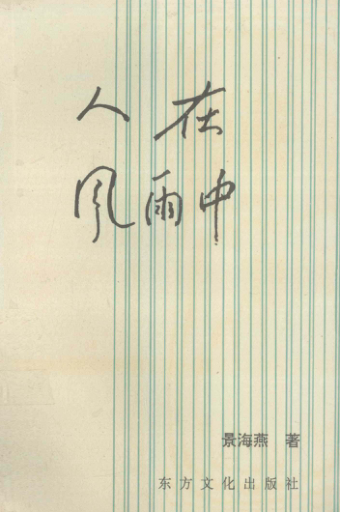 人在
風雨中
景海燕 著
东方文化出版社